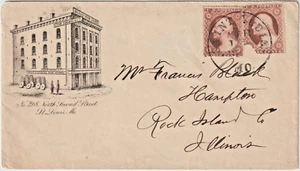 No. 208 North Second Street
St. Louis, Mo.
Mr Francis Black
Hampton
Rock Island Co
Illinois